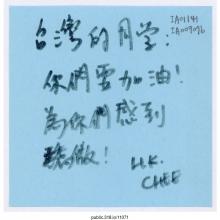 台灣的同学：
IA01141
IA009096
你們要加油！
為你們感到
驕傲！
H.K.
CHEE
public.318.io/11071